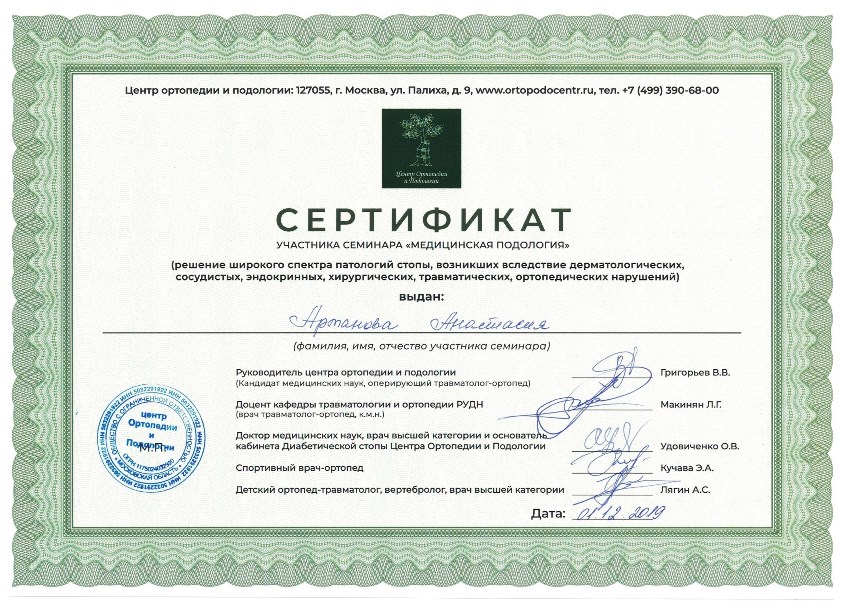 Центр ортопедии и подологии: 127055, г. Москва, ул. Палиха, д. 9, www.ortopodocentr.ru, тел. +7 (499) 390-68-00
Центр Ортопедии
и Подологии
СЕРТИФИКАТ
УЧАСТНИКА СЕМИНАРА «МЕДИЦИНСКАЯ ПОДОЛОГИЯ»
(решение широкого спектра патологий стопы, возникших вследствие дерматологических,
сосудистых, эндокринных, хирургических, травматических, ортопедических нарушений)
выдан:
Артанова Анастасия
(фамилия, имя, отчество участника семинара)
Руководитель центра ортопедии и подологии
(Кандидат медицинских наук, оперирующий травматолог-ортопед)
Григорьев В.В.
Доцент кафедры травматологии и ортопедии РУДН
(врач травматолог-ортопед, к.м.н.)
Макинян Л.Г.
Доктор медицинских наук, врач высшей категории и основатель
кабинета Диабетической стопы Центра Ортопедии и Подологии
Удовиченко О.В.
Спортивный врач-ортопед
Кучава Э.А.
Детский ортопед-травматолог, вертебролог, врач высшей категории
Лягин А.С.
Дата: 01.12.2019
центр
Ортопедии
и
Подологии
М.П.
ОБЩЕСТВО С ОГРАНИЧЕННОЙ ОТВЕТСТВЕННОСТЬЮ
МОСКОВСКАЯ ОБЛАСТЬ